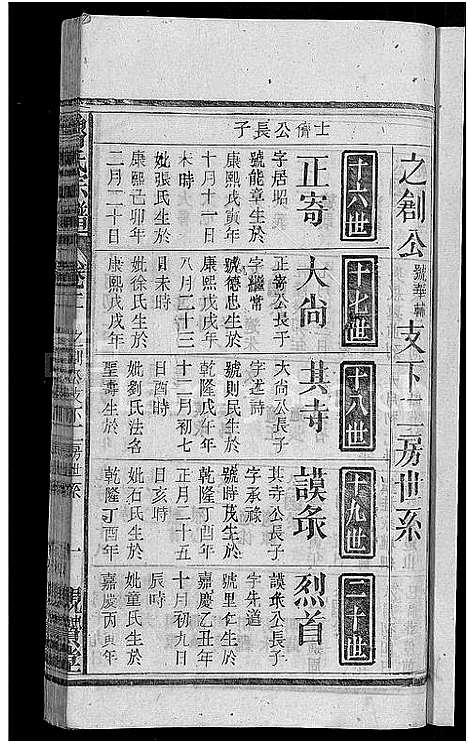 之創公號華輔支下二房世系
十六世
士儕公長子
正寄
字居昭
號能章生於
康熙戊寅年
十月十一日
未時
妣張氏生於
康熙己卯年
二月二十日
十七世
大尚
正寄公長子
字繼常
號德忠生於
康熙戊戌年
八月二十三
日未時
妣徐氏生於
康熙戊戌年
十八世
其寺
大尚公長子
字述詩
號則民生於
乾隆戊午年
十二月初七
日酉時
妣劉氏法名
聖壽生於
十九世
謨承
其寺公長子
字承祿
號時茂生於
乾隆丁酉年
正月二十五
日亥時
妣石氏生於
乾隆丁酉年
二十世
烈首
謨承公長子
字先道
號里仁生於
嘉慶乙丑年
十月初九日
辰時
妣童氏生於
嘉慶丙寅年
氏宗譜
之創公支下二房世系
一